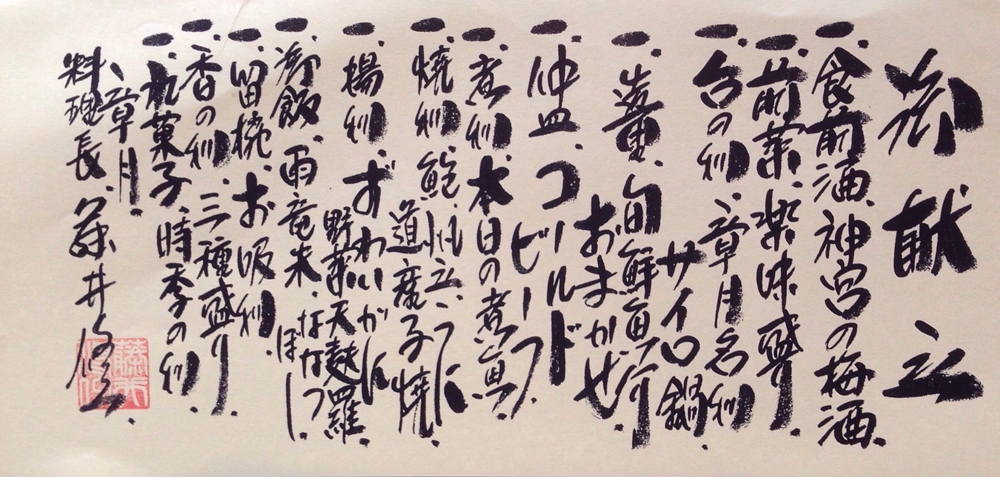 御献立
一、食前酒、神宮の梅酒
一、前菜、楽味盛り
一、台の料、章月名料
サイロ鍋
一、造里、旬鮮魚介
おまかせ
一、仲皿、コールド
ビーフ
一、煮料、本日の煮魚
一、焼料、鮑、帆立、かに
道産子焼
一、揚料、ずわいがに
野菜天麩羅
一、御飯、雨竜米、ななつ
ぼし
一、留椀、お吸料
一、香の料、三種盛り
一、水菓子、時季の料
章月
料理長、藤井修一